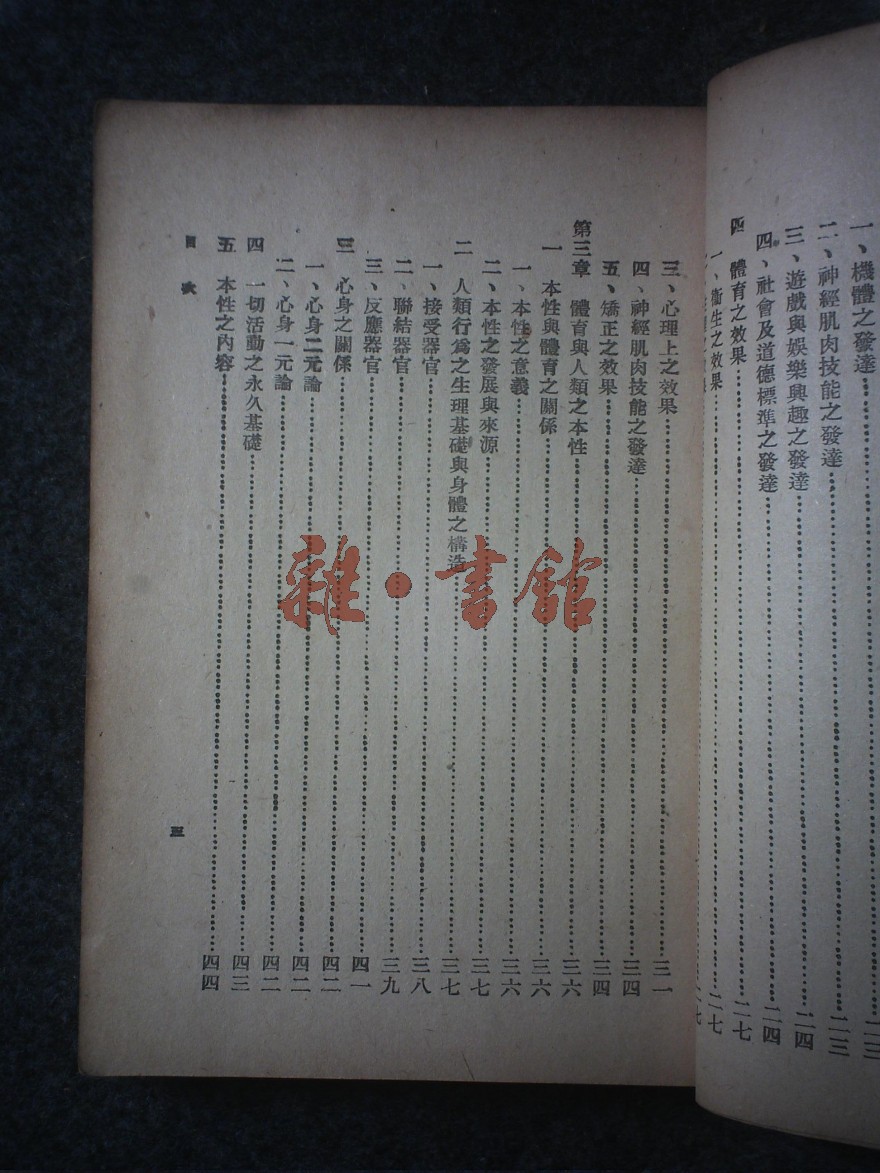 一、機體之發達……二三
二、神經肌肉技能之發達……二三
三、遊戲與娛樂興趣之發達……二四
四、社會及道德標準之發達……二四
四 體育之效果……二七
一、衞生之效果……二七
三、心理上之效果……三一
四、神經肌肉技能之發達……三四
五、矯正之效果……三四
第三章 體育與人類之本性……三六
一 本性與體育之關係……三六
一、本性之意義……三六
二、本性之發展與來源……三七
二 人類行爲之生理基礎與身體之構造……三七
一、接受器官……三八
二、聯結器官……三九
三、反應器官……四一
三 心身之關係……四二
一、心身二元論……四二
二、心身一元論……四二
四 一切活動之永久基礎……四三
五 本性之內容……四四
目次
三
雜·書館